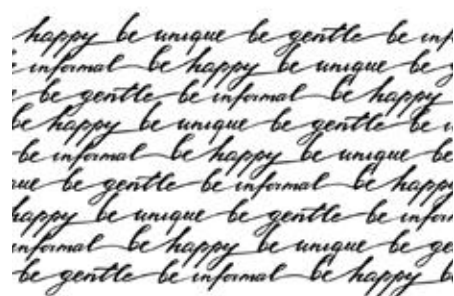 happy be unique be gentle be inf
e informal be happy be unique be g
e be gentle be informal be happy
be happy be unique be gentle be i
be informal be happy be unique be
ue be gentle be informal be happy
happy be unique be gentle be infor
informal be happy be unique be ge
be gentle be informal be happy b